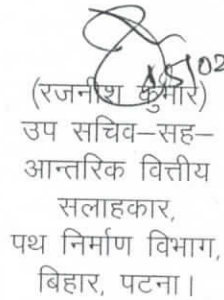 15/02
(रजनीश कुमार)
उप सचिव–सह–
आन्तरिक वित्तीय
सलाहकार,
पथ निर्माण विभाग,
बिहार, पटना।